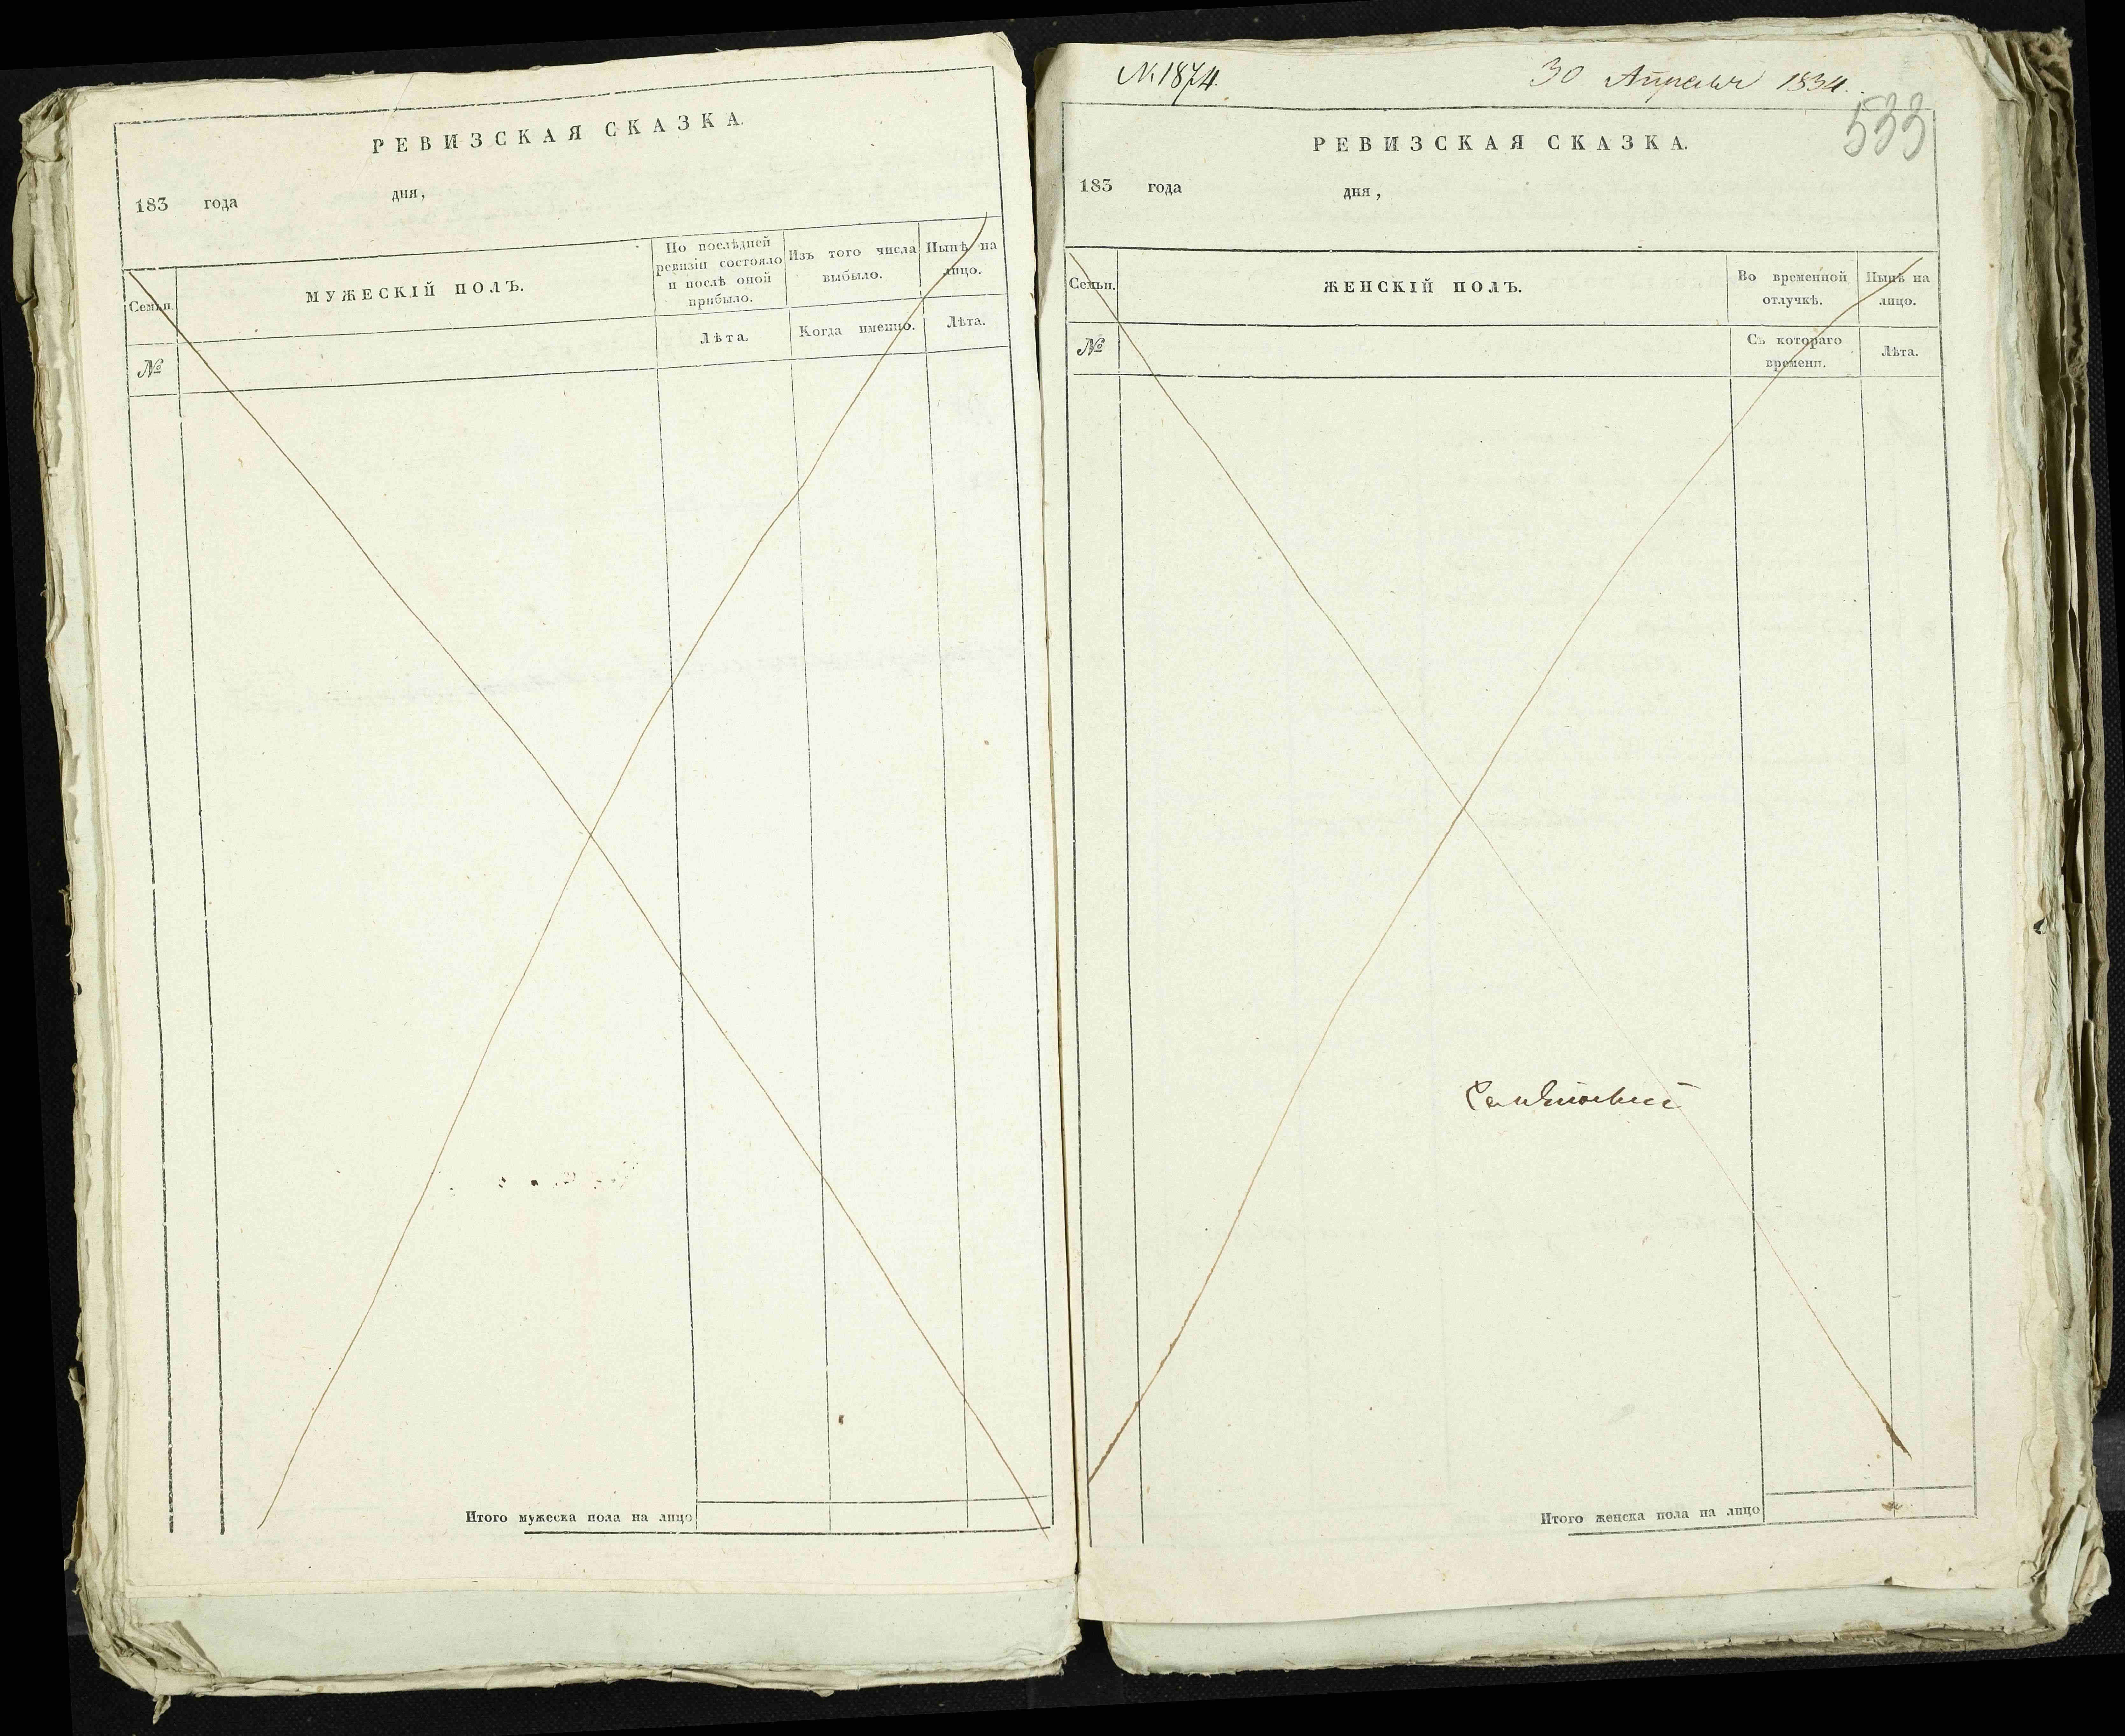 РЕВИЗСКАЯ СКАЗКА.
183 года дня,
Семьи.
МУЖЕСКІЙ ПОЛЪ.
По послѣдней
ревизіи состояло
и послѣ оной
прибыло.
Изъ того числа
выбыло.
Нынѣ на
лицо.
№
Лѣта.
Когда именно.
Лѣта.
Итого мужеска пола на лицо
№ 1874.
30 Апреля 1834.
533
РЕВИЗСКАЯ СКАЗКА.
183 года дня,
Семьи.
ЖЕНСКІЙ ПОЛЪ.
Во временной
отлучкѣ.
Нынѣ на
лицо.
№
Съ котораго
времени.
Лѣта.
Итого женска пола на лицо